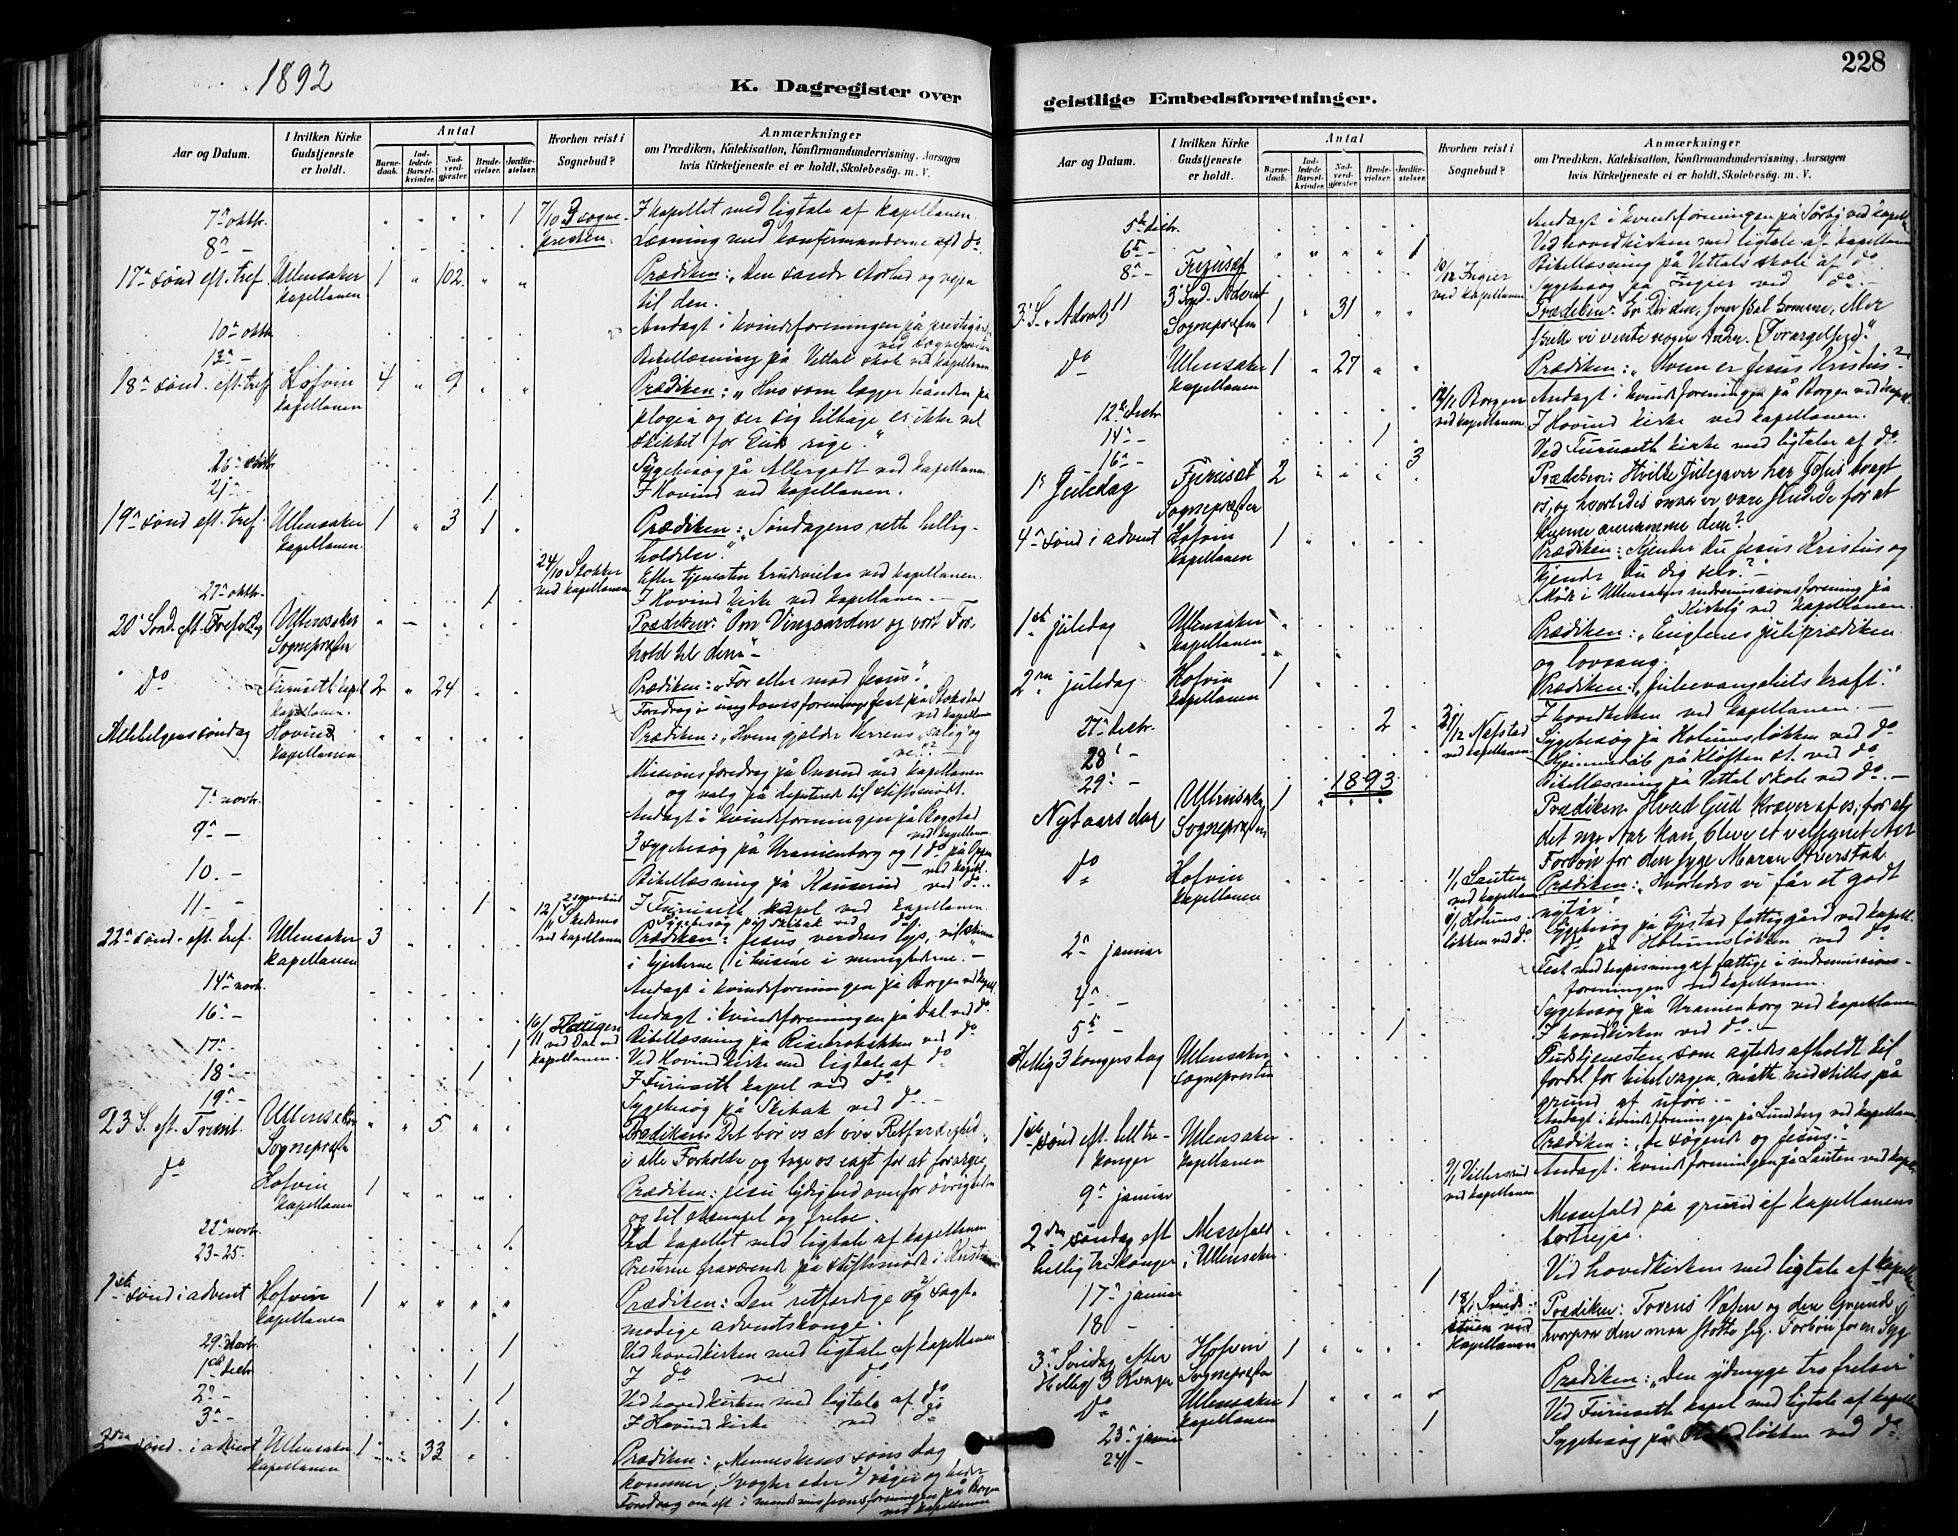 1892
K. Dagregister over
Aar og Datum.
I hvilken Kirke Gudstjeneste er holdt.
Antal
Barne-daab.
Ind-ledede Barsel-kvinder.
Nad-verd-gjæster.
Brude-vielser.
Jordfæ-stelser.
Hvorhen reist i Sognebud?
Anmærkninger
om Prædiken, Katekisation, Konfirmandundervisning, Aarsagen
hvis Kirketjeneste ei er holdt, Skolebesøg. m. V.
7de oktbr. 1 7/10 sogne-presten. I kapellet med ligtale af kapellanen.
8de - Læsning med konfirmanderne ved do.
17de sønd. eft. tref. Ullensaker 1 102 Prædiken: „Den sande storhed og vejen
kapellanen til den.
10de oktbr. Andagt i kvindeforeningen på prestegården
ved Sognepresten
13de - Bibellæsning på Vittal skole ved kapellanen
18de sønd. eft. tref. Hofvin 4 9 Prædiken: „Hvo som lægger hånden på
kapellanen plogen og ser sig tilbage er ikke vel
skikket for Guds rige"
26de oktbr. Sygebesøg på Allergodt ved kapellanen
21de - 1 I Hovind ved kapellanen.
19de sønd. eft. tref. Ullensaker 1 3 1 Prædiken: „Søndagens rette hellig-
kapellanen holdelse."
24/10 Stokker Efter tjenesten brudevielse ved kapellanen.
27de oktbr. 1 ved kapellanen I Hovind kirke ved kapellanen. -
20 Sønd. eft. Trefoldg Ullensaker Prædiken: "Om Vingaarden og vort For-
Sognepræsten hold til den"-
Do Furuseth kapel 2 24 Prædiken: „For eller mod Jesus".
kapellanen. Foredrag i ungdomsforenings fest på Stokstad
ved kapellanen
Allehelgenssøndag Hovind Prædiken: „Hvem gjælder Herrens „salig" og
kapellanen „ve"?
Missionsforedrag på Onsrud ved kapellanen
og valg på deputerede til stiftsmødet.
7de novbr. Andagt i kvindeforeningen på Rogstad
ved kapellanen.
9de - 3 sygebesøg på Uranienborg og 1 do på Oppen
ved kapel.
10. - Bibellæsning på Kauserud ved do.
11 - 1 I Furuseth kapel ved kapellanen
12/11 Skednes Sygebesøg på Skibak ved do.
22de sønd. eft. tref. Ullensaker 3 ved kapellanen Prædiken: Jesus verdens lys, vil skinne
kapellanen i hjerterne, i husene i menighederne. -
14de novbr. Andagt i kvindeforeningen på Borgen ved kapell.
16de - Andagt i kvindeforeningen på Dal ved do.
17de - 1 16/11 Fattigen ved Dal ved kapellanen. Bibellæsning på Risebrobakken ved do
Ved Hovind kirke med ligtale af do
18de - 1 I Furuseth kapel ved do.
19de - Sygebesøg på Skibak ved do. -
23 S. eft. Trinit. Ullensaker 5 Prædiken: Det bør os at øve Retfærdighed
Sognepræsten i alle Forholde og tage os vagt for at forarge
do Hofvin 1 Prædiken: Jesu lydighed overfor øvrigheden
kapellanen os til eksempel og frelse.
22de novbr. 1 Ved kapellet med ligtale af kapellanen
23-25. Presterne fraværende på stiftsmøde i Kristiania
1ste sønd i advent Hofvin 1 Prædiken: „Den 1/ retfærdige og 2/ sagt-
kapellanen modige adventskonge."
29. Novbr. 1 Ved hovedkirken med ligtale af kapellanen
1ste decbr 1 I do ved do
2de - 1 Ved hovedkirken med ligtale af do
3de - 1 I Hovind kirke ved do
2den sønd. i advent Ullensaker 1 33 Prædiken: „Menneskens søns dag
kapellanen kommer, 1/ vogter eder 2/ våger og beder
Foredrag om eft. i indremissionsforeningen på Borgen
ved kapellanen
228
geistlige Embedsforretninger.
Aar og Datum.
I hvilken Kirke Gudstjeneste er holdt.
Antal
Barne-daab.
Ind-ledede Barsel-kvinder.
Nad-verd-gjæster.
Brude-vielser.
Jordfæ-stelser.
Hvorhen reist i Sognebud?
Anmærkninger
om Prædiken, Katekisation, Konfirmandundervisning, Aarsagen
hvis Kirketjeneste ei er holdt, Skolebesøg. m. V.
5te decbr. Andagt i kvindeforeningen på Sørby ved kapell.
6te - 1 Ved hovedkirken med ligtale af kapellanen
8de - Furuset 10/12 Ingier Bibellæsning på Vittals skole af do
ved kapellanen Sygebesøg på Ingier ved do. -
3. S. i Advent 11 3 Sønd. Advent Sognepræsten 1 31 Prædiken: Er Du den, som skal komme, eller
skulle vi vente nogen Anden. (Forargelsen)."
do Ullensaker 1 27 Prædiken: „Hvem er Jesus Kristus?"
kapellanen
12te decbr. 12/12 Borgen Andagt i kvindeforeningen på Borgen ved kapell.
14de - 1 ved kapellanen I Hovind kirke ved kapellanen.
16de - 3 Ved Furuseth kirke med ligtaler af do
1ste Juledag Furuset 2 Prædiken: Hvilke Julegaver har Jesus bragt
Sognepræsten os, og hvorledes maa vi være skikkede for at
kunne annamme dem?
4de sønd i advent Hofvin 1 Prædiken: „Kjender du Jesus Kristus og
kapellanen kjender du dig selv?"-
Møde i Ullensakers indremissionsforening på
Kirkeby ved kapellanen.
1ste juledag Ullensaker Prædiken: „Englenes juleprædiken
kapellanen og lovsang."
2den juledag Hofvin 1 Prædiken: „Juleevangeliets kraft."
kapellanen
27de decbr. 2 31/12 Nefstad I hovedkirken ved kapellanen. -
28 - ved kapellanen Sygebesøg på Holumsløkken ved do
Hjemmedåb på Kløften st. ved do
29de - Bibellæsning på Vittal skole ved do. -
1893
Nytaarsdag Ullensaker 1 Prædiken Hvad Gud kræver af os, for at
Sognepræsten det nye Aar kan blive et velsignet Aar
Forbøn for den syge Maren Averstad
do Hofvin 1/1 Lauten Prædiken: „Hvorledes vi får et godt
kapellanen ved kapellanen nytår."
1/1 Holums- Sygebesøg på Gystad fattiggård ved kapell.
2de januar løkken ved do do på Holumsløkken ved do
Fest med bespisning af fattige i indremissions-
foreningen ved kapellanen.
4de - Sygebesøg på Uranienborg ved kapellanen
5te - 1 I hovedkirken ved do. -
Hellig 3 kongers dag Ullensaker Gudstjenesten, som agtedes afholdt til
sognepresten fordel for bibelsagen, måtte indstilles på
grund af uføre. -
Andagt i kvindeforeningen på Lundberg ved kapellanen
1ste sønd eft. hell. tre- Ullensaker Prædiken: „De søgende og Jesus."-
konger kapellanen
9de januar 9/1 Villersrud Andagt i kvindeforeningen på Lauten ved kapel.
ved kapellanen
2den søndag eft Messefald Messefald på grund af kapellanens
hellig tre konger i Ullensaker bortrejse.
17de januar 1 Ved hovedkirken med ligtale af kapellan
18 - 18/1 ved kapellanen
3. Søndag efter Hofvin 1 Prædiken: Troens Væsen og den Grund
Hellig 3 Konger Sognepræsten hvorpaa den maa støtte sig. Forbøn for en Syg
Do Ullensaker 1 Prædiken: „Den ydmyge tros frelser"
kapellanen
23de januar 1 Ved Furuseth kapel med ligtale af kapellan
24de - Sygebesøg på løkken ved do